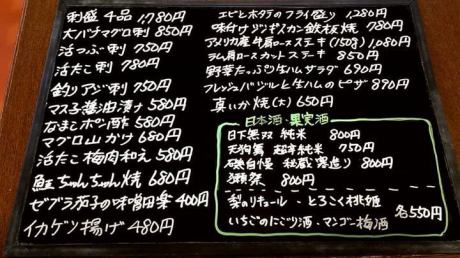 刺盛 4品 1,780円
大バチマグロ刺 850円
活つぶ刺 750円
活たこ刺 780円
釣りアジ刺 750円
マス子醤油漬け 580円
なまこポン酢 580円
マグロ山かけ 680円
活たこ梅肉和え 580円
鮭ちゃんちゃん焼 680円
ゼブラ茄子の味噌田楽 400円
イカゲソ揚げ 480円
エビとホタテのフライ盛り 1,280円
味付けジンギスカン鉄板焼 780円
アメリカ産牛肩ロースステーキ(150g) 1,080円
ラム肩ロースカットステーキ 850円
野菜たっぷり生ハムサラダ 690円
フレッシュバジルと生ハムのピザ 890円
真いか焼(大) 650円
日本酒・果実酒
日下無双 純米 800円
天狗舞 超辛純米 750円
磯自慢 秘蔵寒造り 800円
獺祭 800円
梨のリキュール・とろこく桃姫
いちごのにごり酒・マンゴー梅酒
各550円